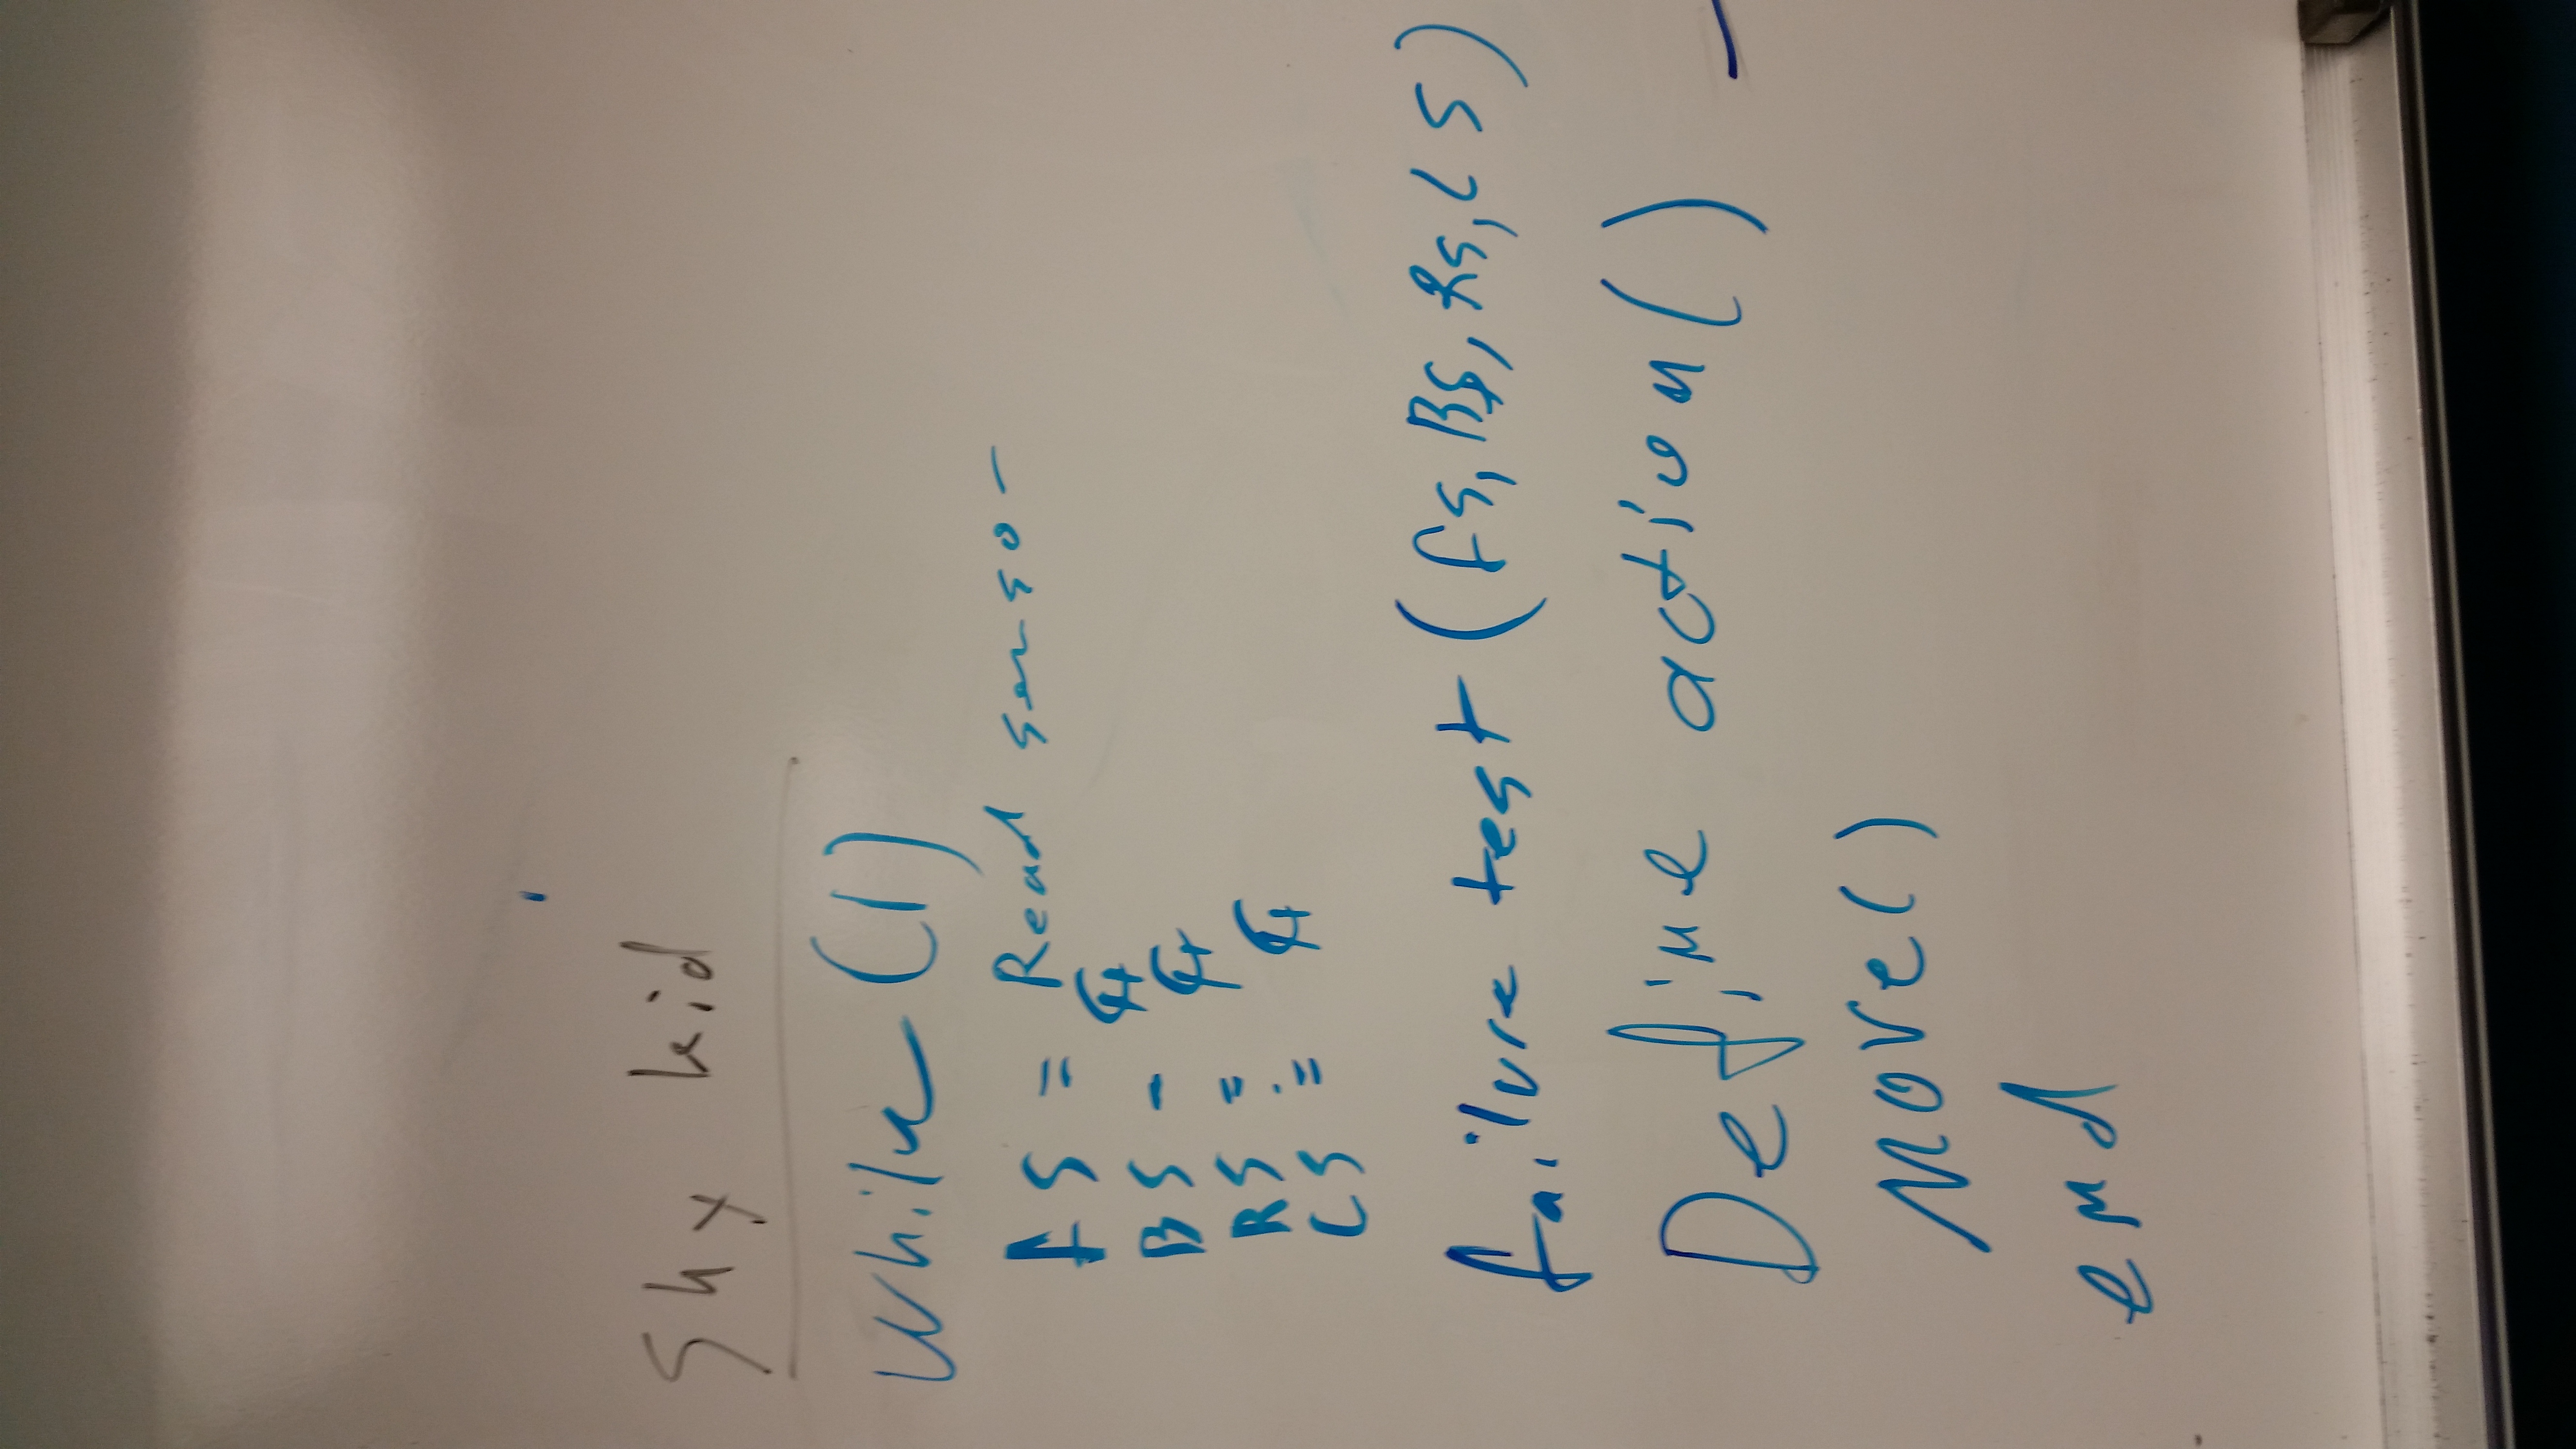 Shy kid
while (1)
fS = Read sensor
BS =
RS =
LS =
failure test (fS, BS, RS, LS)
Define action ( )
Move ( )
end